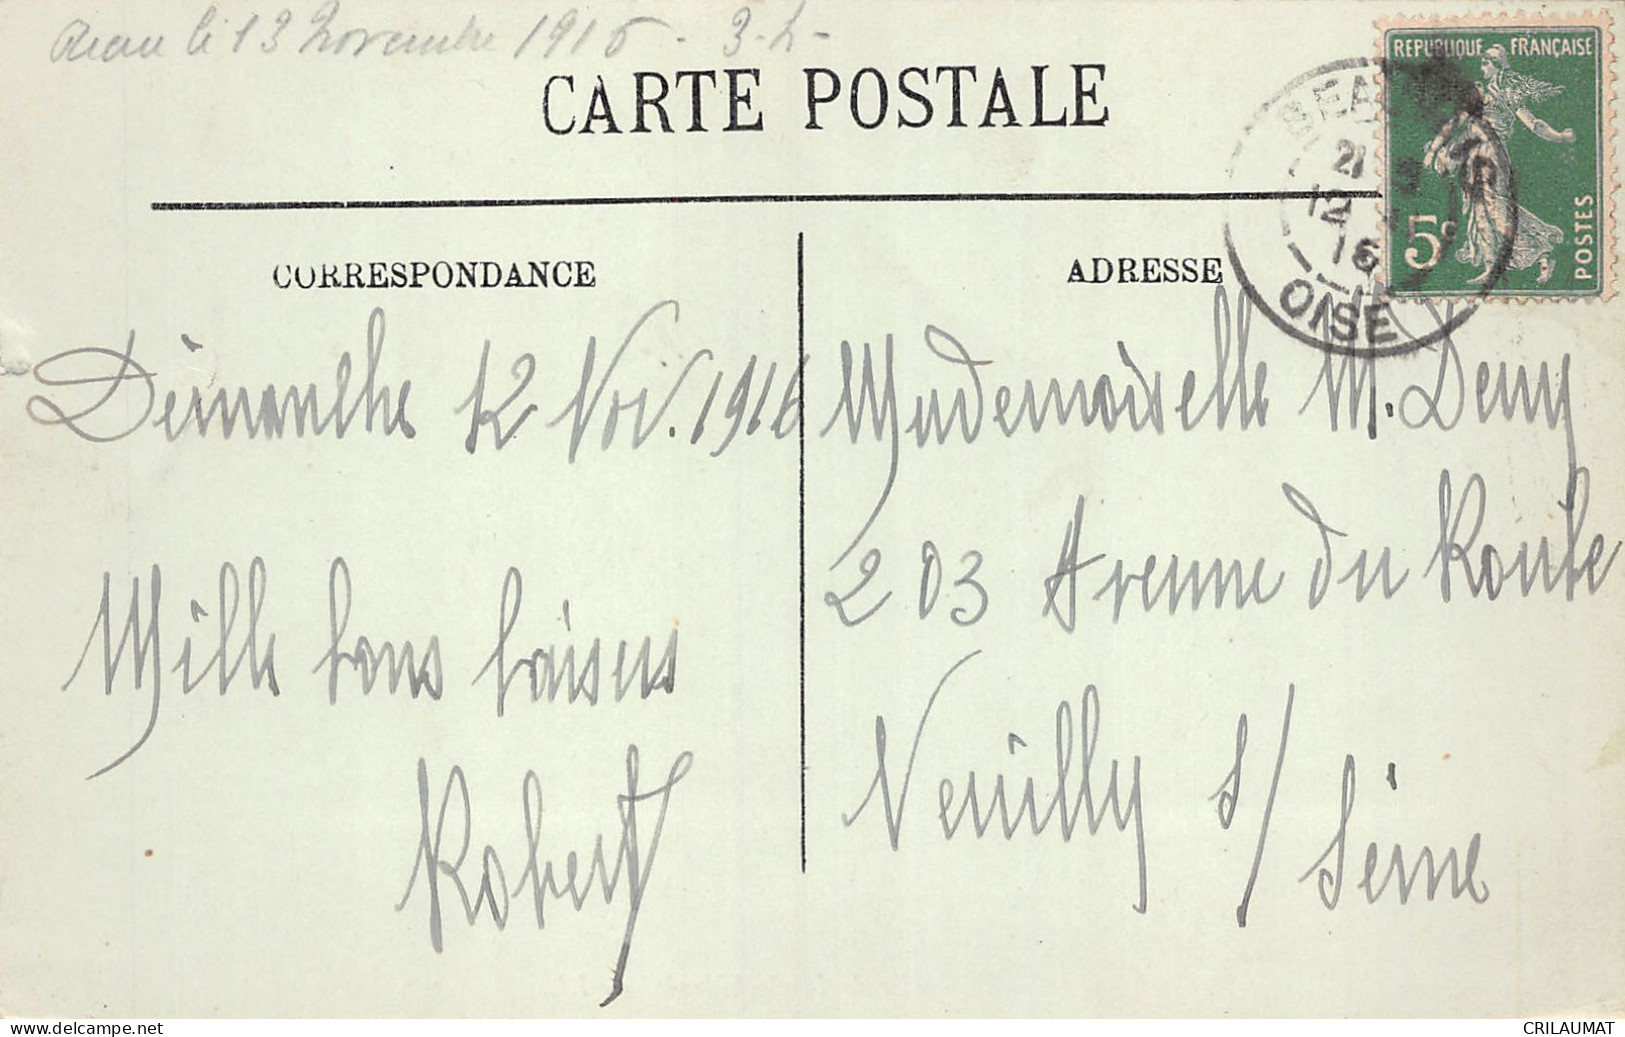 le 13 Novembre 1916 - 3-h-
CARTE POSTALE
REPUBLIQUE FRANÇAISE
5c
POSTES
21
12
16
OISE
CORRESPONDANCE
ADRESSE
Dimanche 12 Nov. 1916
Mille bons baisers
Robert
Mademoiselle M. Demy
203 Avenue du Roule
Neuilly s/
Seine
www.delcampe.net
CRILAUMAT